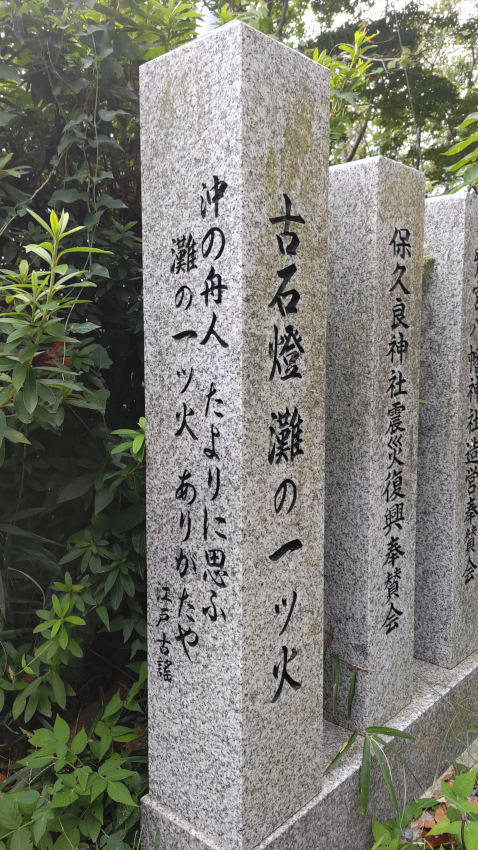 古石燈灘の一ツ火
沖の舟人 たよりに思ふ
灘の一ツ火 ありがたや
江戸古謡
保久良神社震災復興奉賛会
八幡神社造営奉賛会